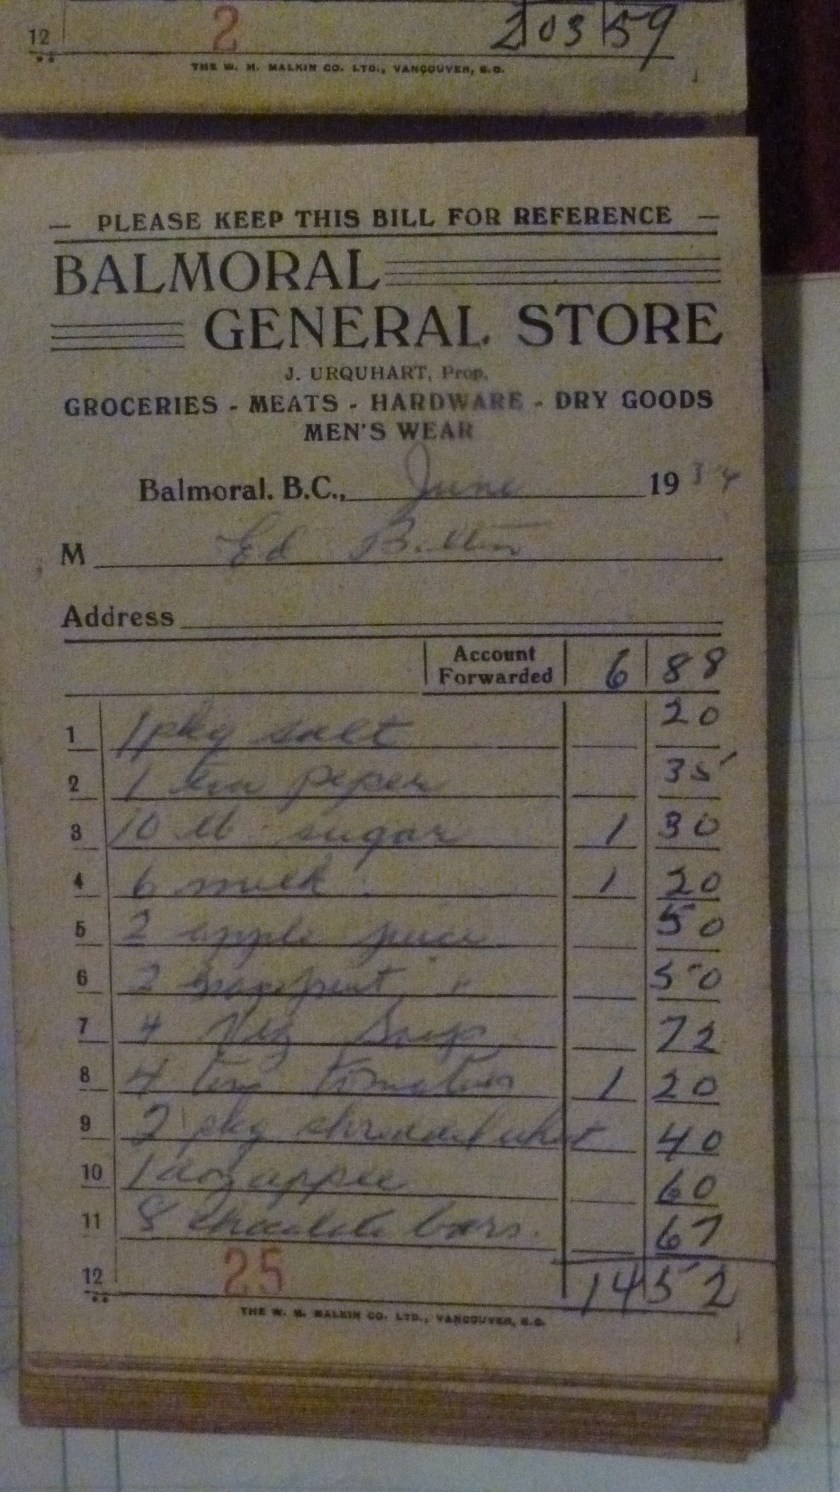 12 2 203 59
THE W. H. MALKIN CO. LTD., VANCOUVER, B.C.
— PLEASE KEEP THIS BILL FOR REFERENCE —
BALMORAL
GENERAL STORE
J. URQUHART, Prop.
GROCERIES - MEATS - HARDWARE - DRY GOODS
MEN'S WEAR
Balmoral. B.C., June 19 34
M Ed
Address
Account Forwarded 6 88
1 1 pkg salt 20
2 1 peper 35
3 10 lb. sugar 1 30
4 6 milk 1 20
5 2 apple juice 50
6 2 grapefruit " 50
7 4 Veg Soup 72
8 4 tins tomatoes 1 20
9 2 pkg shredded wheat 40
10 1 doz apples 60
11 8 chocolate bars. 67
12 25 14 52
THE W. H. MALKIN CO. LTD., VANCOUVER, B.C.